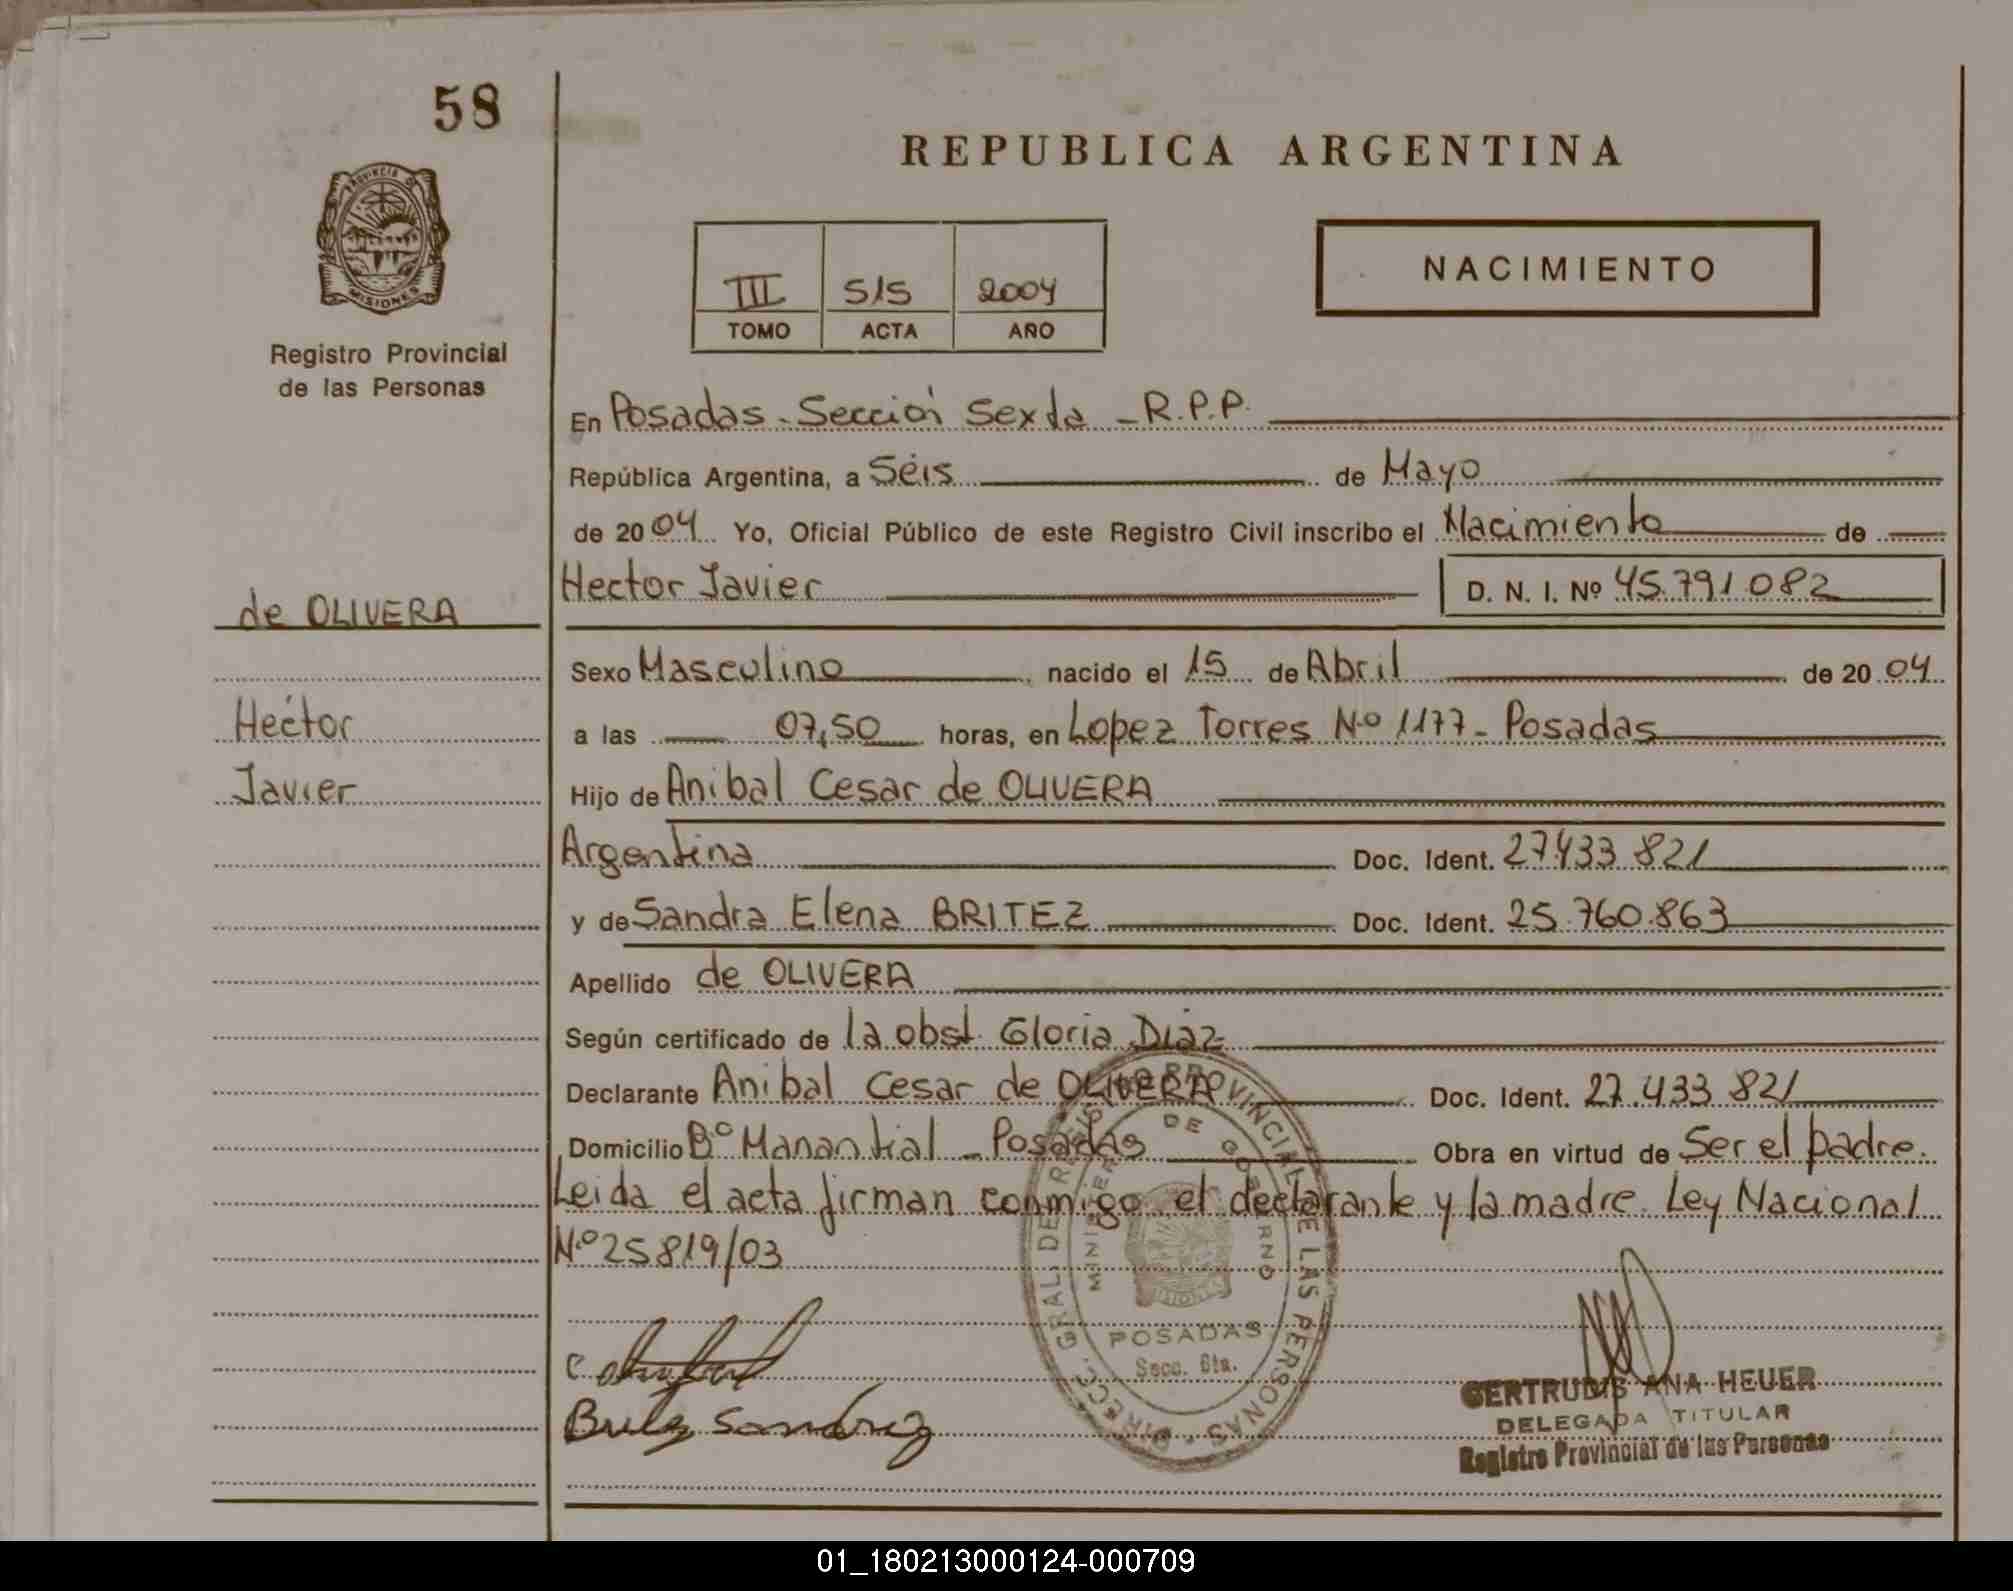 58
REPUBLICA ARGENTINA
PROVINCIA DE
MISIONES
Registro Provincial
de las Personas
III 515 2004
TOMO ACTA AÑO
NACIMIENTO
En Posadas - Sección Sexta - R.P.P.
República Argentina, a Séis de Mayo
de 2004 Yo, Oficial Público de este Registro Civil inscribo el Nacimiento de
Hector Javier D. N. I. Nº 45.791.082
de OLIVERA
Sexo Masculino nacido el 15 de Abril de 2004
Hector
a las 07,50 horas, en Lopez Torres Nº 1177 - Posadas
Javier
Hijo de Anibal Cesar de OLIVERA
Argentina Doc. Ident. 27.433.821
y de Sandra Elena BRITEZ Doc. Ident. 25.760.863
Apellido de OLIVERA
Según certificado de la obst. Gloria Diaz
Declarante Anibal Cesar de OLIVERA Doc. Ident. 27.433.821
Domicilio Bº Manantial - Posadas Obra en virtud de Ser el padre.
Leida el acta firman conmigo el declarante y la madre. Ley Nacional
Nº 25819/03
DIRECC. GRAL. DE REGISTRO PROVINCIAL DE LAS PERSONAS
MINISTERIO DE GOBIERNO
POSADAS
Secc. 6ta.
GERTRUDIS ANA HEUER
DELEGADA TITULAR
Registro Provincial de las Personas
01_180213000124-000709